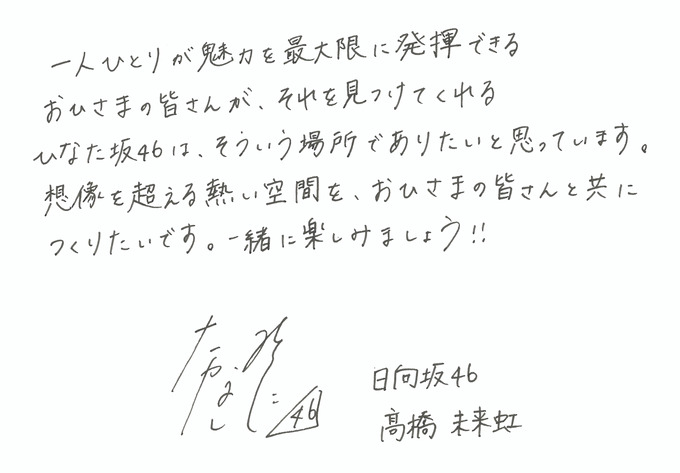 一人ひとりが魅力を最大限に発揮できる
おひさまの皆さんが、それを見つけてくれる
ひなた坂46は、そういう場所でありたいと思っています。
想像を超える熱い空間を、おひさまの皆さんと共に
つくりたいです。一緒に楽しみましょう!!
46
日向坂46
髙橋 未来虹